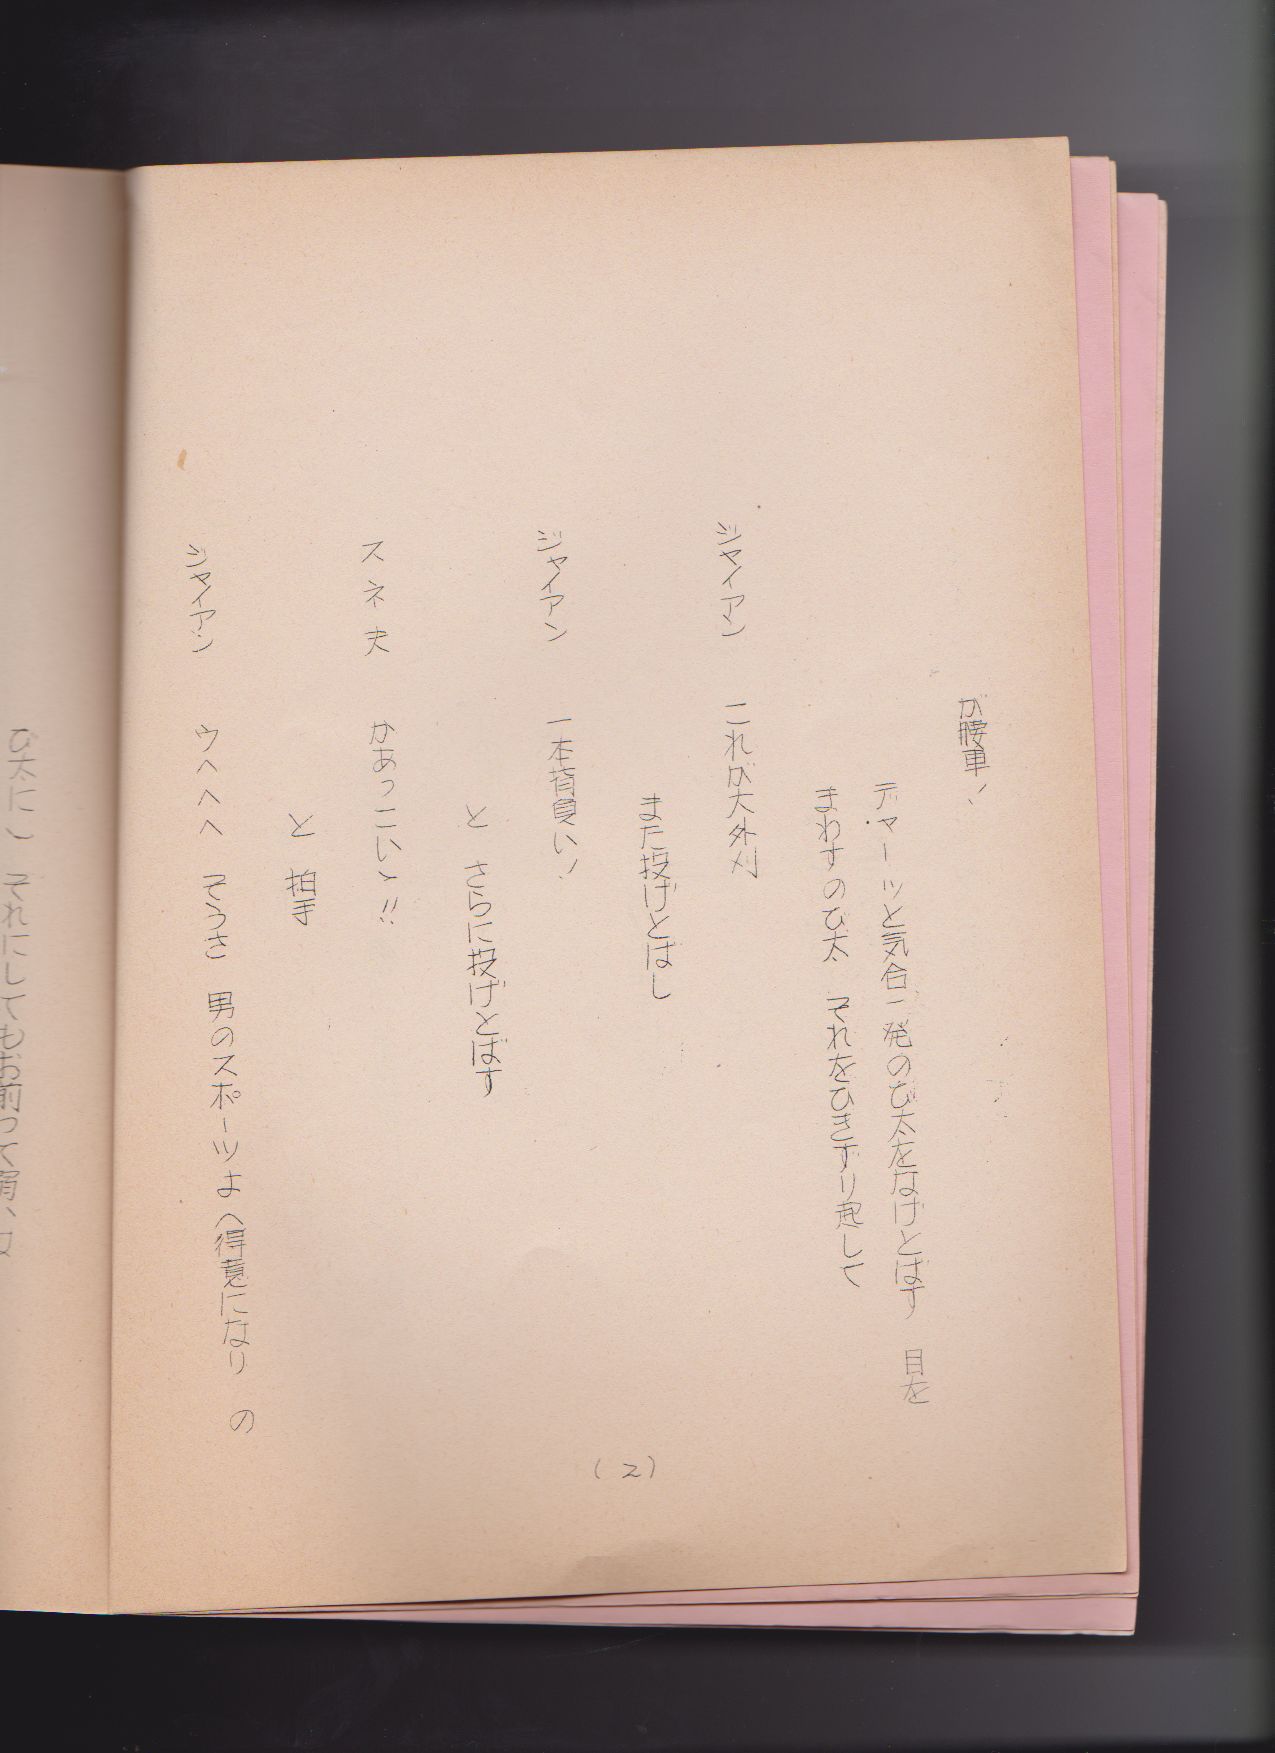 が腰車!
デャーッと気合一発のび太をなげとばす 目を
まわすのび太 それをひきずり起して
ジャイアン これが大外刈
また投げとばし
ジャイアン 一本背負い!
と さらに投げとばす
スネ夫 かあっこいゝ!!
と 拍手
ジャイアン ウヘヘヘ そうさ 男のスポーツよ(得意になり の
(2)
び太に) それにしてもお前って弱い